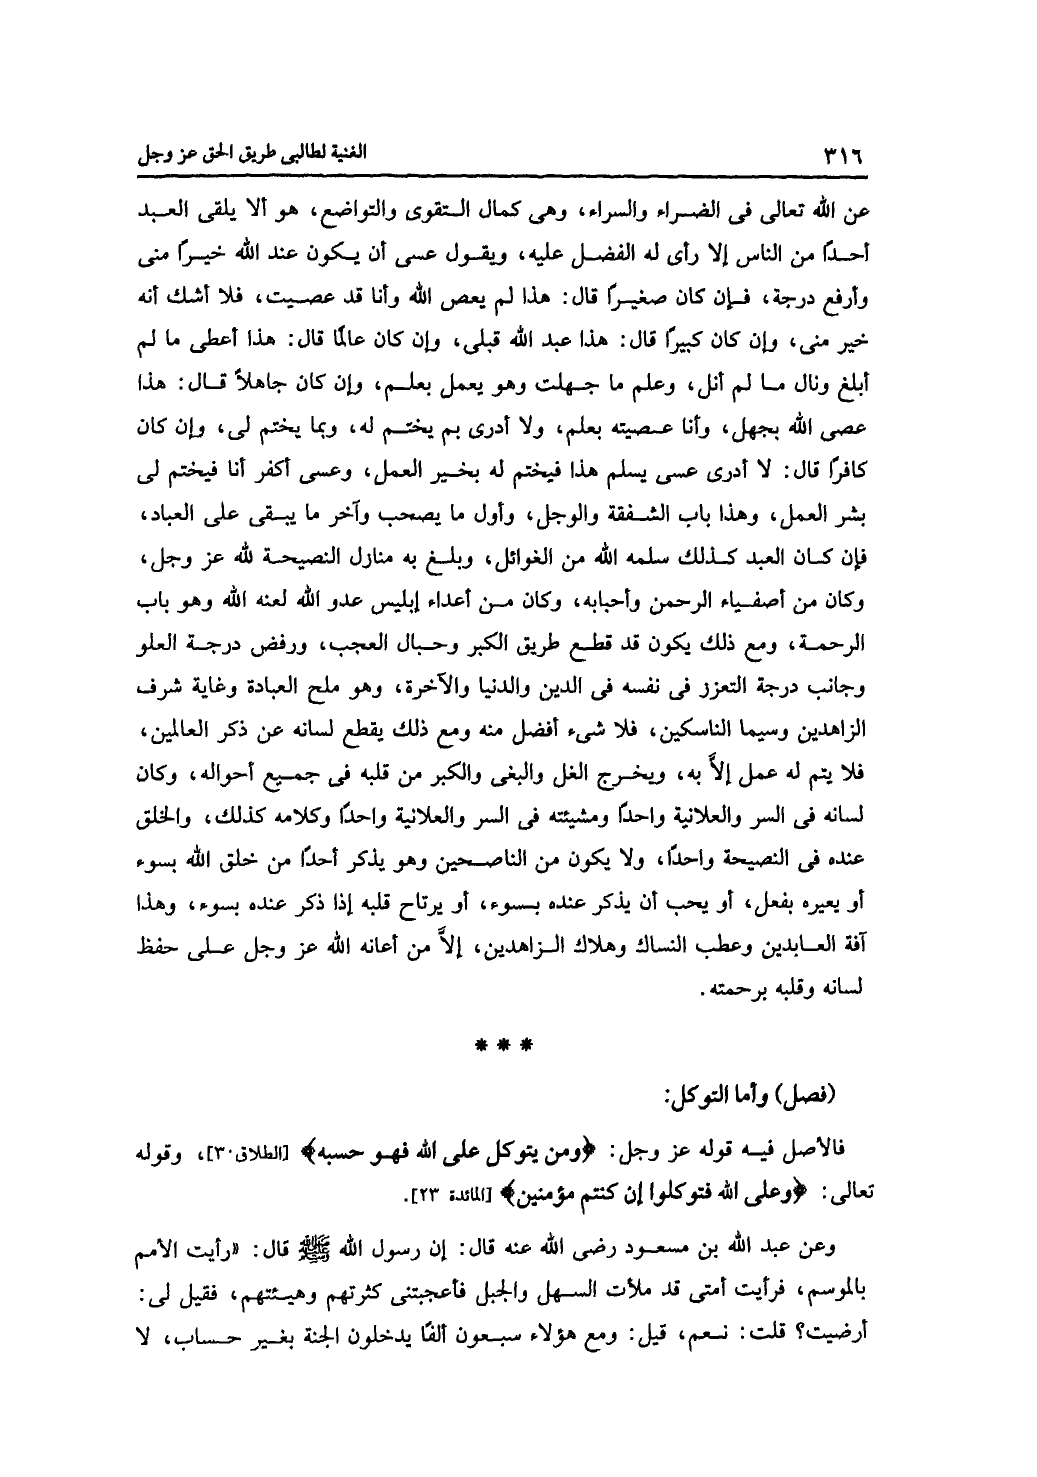 ٣١٦ الغنية لطالبى طريق الحق عز وجل
عن الله تعالى فى الضراء والسراء، وهى كمال التقوى والتواضع، هو ألا يلقى العبد
أحدًا من الناس إلا رأى له الفضل عليه، ويقول عسى أن يكون عند الله خيرًا منى
وأرفع درجة، فإن كان صغيرًا قال: هذا لم يعص الله وأنا قد عصيت، فلا أشك أنه
خير منى، وإن كان كبيرًا قال: هذا عبد الله قبلى، وإن كان عالمًا قال: هذا أعطى ما لم
أبلغ ونال ما لم أنل، وعلم ما جهلت وهو يعمل بعلم، وإن كان جاهلاً قال: هذا
عصى الله بجهل، وأنا عصيته بعلم، ولا أدرى بم يختم له، وبما يختم لى، وإن كان
كافرًا قال: لا أدرى عسى يسلم هذا فيختم له بخير العمل، وعسى أكفر أنا فيختم لى
بشر العمل، وهذا باب الشفقة والوجل، وأول ما يصحب وآخر ما يبقى على العباد،
فإن كان العبد كذلك سلمه الله من الغوائل، وبلغ به منازل النصيحة لله عز وجل،
وكان من أصفياء الرحمن وأحبابه، وكان من أعداء إبليس عدو الله لعنه الله وهو باب
الرحمة، ومع ذلك يكون قد قطع طريق الكبر وحبال العجب، ورفض درجة العلو
وجانب درجة التعزز فى نفسه فى الدين والدنيا والآخرة، وهو ملح العبادة وغاية شرف
الزاهدين وسيما الناسكين، فلا شىء أفضل منه ومع ذلك يقطع لسانه عن ذكر العالمين،
فلا يتم له عمل إلاَّ به، ويخرج الغل والبغى والكبر من قلبه فى جميع أحواله، وكان
لسانه فى السر والعلانية واحدًا ومشيئته فى السر والعلانية واحدًا وكلامه كذلك، والخلق
عنده فى النصيحة واحدًا، ولا يكون من الناصحين وهو يذكر أحدًا من خلق الله بسوء
أو يعيره بفعل، أو يحب أن يذكر عنده بسوء، أو يرتاح قلبه إذا ذكر عنده بسوء، وهذا
آفة العابدين وعطب النساك وهلاك الزاهدين، إلاَّ من أعانه الله عز وجل على حفظ
لسانه وقلبه برحمته.
* * *
(فصل) وأما التوكل:
فالأصل فيه قوله عز وجل: ﴿ومن يتوكل على الله فهو حسبه﴾ [الطلاق ٣٠]، وقوله
تعالى: ﴿وعلى الله فتوكلوا إن كنتم مؤمنين﴾ [المائدة ٢٣].
وعن عبد الله بن مسعود رضى الله عنه قال: إن رسول الله ﷺ قال: «رأيت الأمم
بالموسم، فرأيت أمتى قد ملأت السهل والجبل فأعجبتنى كثرتهم وهيئتهم، فقيل لى:
أرضيت؟ قلت: نعم، قيل: ومع هؤلاء سبعون ألفًا يدخلون الجنة بغير حساب، لا